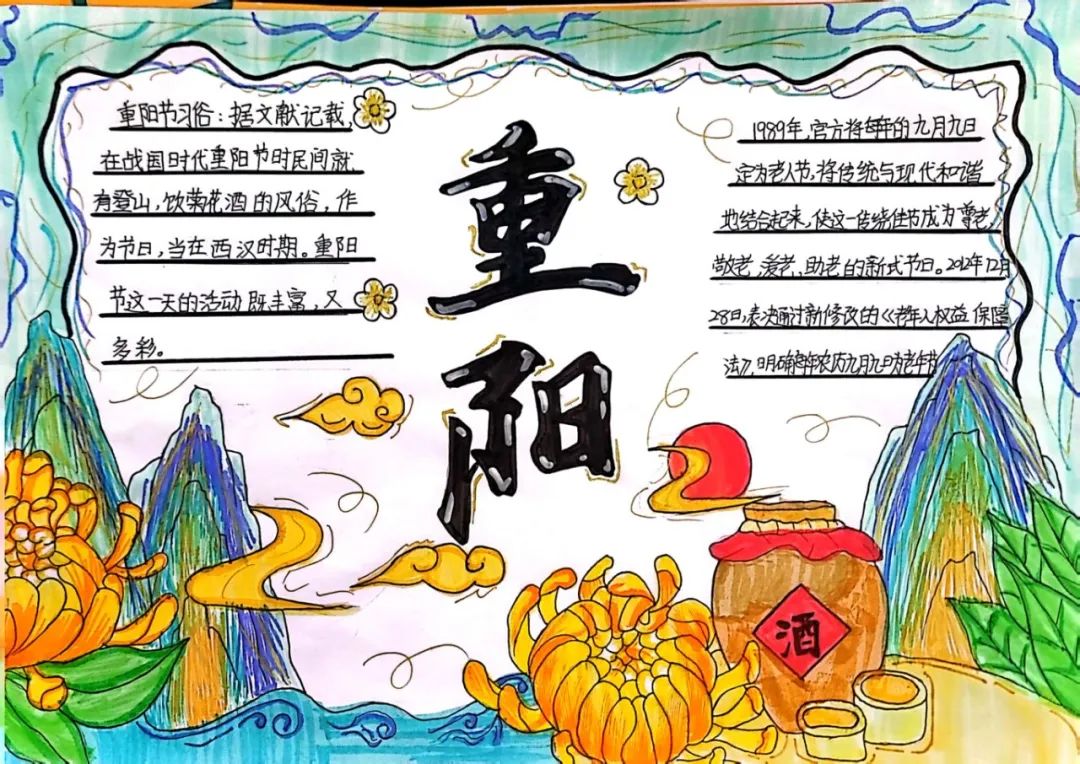 重阳节习俗：据文献记载，
在战国时代重阳节时民间就
有登山，饮菊花酒的风俗，作
为节日，当在西汉时期。重阳
节这一天的活动既丰富，又
多彩。
重
阳
1989年，官方将每年的九月九日
定为老人节，将传统与现代和谐
地结合起来，使这一传统佳节成为尊老，
敬老、爱老、助老的新式节日。2012年12月
28日，表决通过新修改的《老年人权益保障
法》，明确每年农历九月九日为老年节
酒